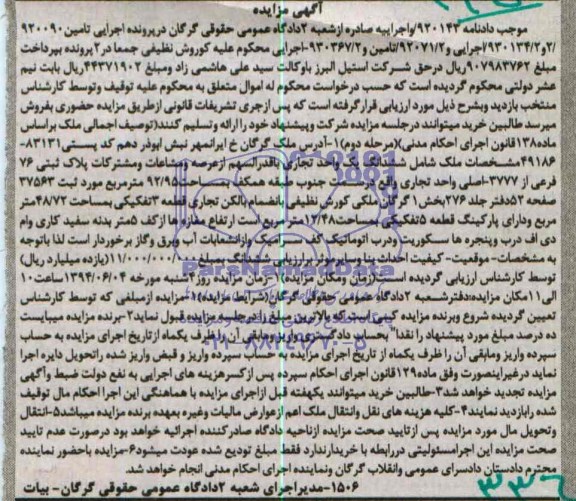 آگهی مزایده
موجب دادنامه ۹۲۰۱۴۳/واجراییه صادره ازشعبه ۲دادگاه عمومی حقوقی گرگان درپرونده اجرایی تامین۹۲۰۰۹۰
/۲و۹۲۰۱۳۴/۲/اجرایی و۹۲۰۷۱/۲/تامین و۹۳۰۳۶۷/۲-اجرایی محکوم علیه کوروش نظیفی جمعا در۲پرونده بپرداخت
مبلغ ۹۰۷۹۸۳۷۶۲ریال درحق شرکت استیل البرز باوکالت سید علی هاشمی زاد ومبلغ ۴۴۳۷۱۹۰۲ریال بابت نیم
عشر دولتی محکوم گردیده است که حسب درخواست محکوم له اموال متعلق به محکوم علیه توقیف وتوسط کارشناس
منتخب بازدید وبشرح ذیل مورد ارزیابی قرارگرفته است که پس ازجری تشریفات قانونی ازطریق مزایده حضوری بفروش
میرسد طالبین خرید میتوانند درجلسه مزایده شرکت وپیشنهاد خود را ارائه وتسلیم کنند(توصیف اجمالی ملک براساس
ماده۱۳۸قانون اجرای احکام مدنی)(مرحله دوم)۱-آدرس ملک گرگان خ ایرانمهر نبش ابوذر دهم کد پستی۸۳۱۳۱-
۴۹۱۸۶مشخصات ملک شامل ششدانگ یک واحد تجاری باقدرالسهم ازعرصه ومشاعات ومشترکات پلاک ثبتی ۷۶
فرعی از ۳۷۷۷-اصلی واحد تجاری واقع درسمت جنوب طبقه همکف بمساحت۹۲/۹۵ مترمربع مورد ثبت ۳۷۵۶۳
صفحه ۵۲دفتر جلد ۲۷۶بخش۱ گرگان ملکی کورش نظیفی بانضمام بالکن تجاری قطعه ۳تفکیکی بمساحت۴۸/۷۲متر
مربع ودارای پارکینگ قطعه ۵تفکیکی بمساحت۱۲/۴۸متر مربع است ارتفاع مغازه ها ازکف ۵متر بدنه سفید کاری وام
دی اف درب وپنجره ها سکوریت ودرب اتوماتیک کف سرامیک وازانشعابات آب وبرق وگاز برخوردار است لذا باتوجه
به مشخصات- موقعیت- کیفیت احداث بنا وسایرموثر برارزیابی ششدانگ بمبلغ ۱۱/۰۰۰/۰۰۰/۰۰۰(یازده میلیارد ریال)
توسط کارشناس ارزیابی گردیده است(زمان ومکان مزایده)۱-زمان مزایده روز ۴شنبه مورخه ۱۳۹۴/۰۶/۰۴ساعت ۱۰
الی۱۱مکان مزایده:دفترشعبه ۲دادگاه عمومی حقوقی گرگان(شرایط مزایده)۱-مزایده ازمبلغی که توسط کارشناس
تعیین گردیده شروع وبرنده مزایده کسی است که بالاترین مبلغ را درجلسه مزایده قبول نماید۲-برنده مزایده میبایست
ده درصد مبلغ مورد پیشنهاد را نقدا" بحساب دادگستری واریز ومابقی آن را ظرف یکماه ازتاریخ اجرای مزایده به حساب
سپرده واریز ومابقی آن را ظرف یکماه از تاریخ اجرای مزایده به حساب سپرده واریز و قبض واریز شده راتحویل دایره اجرا
نماید درغیراینصورت وفق ماده۱۲۹قانون اجرای احکام سپرده پس ازکسرهزینه های اجرایی به نفع دولت ضبط وآگهی
مزایده تجدید خواهد شد۳-طالبین خرید میتوانند یکهفته قبل ازاجرای مزایده با هماهنگی این اجرا احکام مال توقیف
شده رابازدید نمایند۴-کلیه هزینه های نقل وانتقال ملک اعم ازعوارض مالیات وغیره بعهده برنده مزایده میباشد۵-انتقال
وتحویل مال مورد مزایده پس ازتایید صحت مزایده ازناحیه دادگاه صادرکننده اجرائیه خواهد بود درصورت عدم تایید
صحت مزایده این اجرامسئولیتی دررابطه با خریدارندارد فقط مبلغ تودیع شده عودت میشود۶-مزایده باحضور نماینده
محترم دادستان دادسرای عمومی وانقلاب گرگان ونماینده اجرای احکام مدنی انجام خواهد شد.
۱۵۰۶-مدیراجرای شعبه ۲دادگاه عمومی حقوقی گرگان- بیات
۳۳۶
ParsNamadData
۰۲۱-۸۸۳۴۹۶۷۰-۵